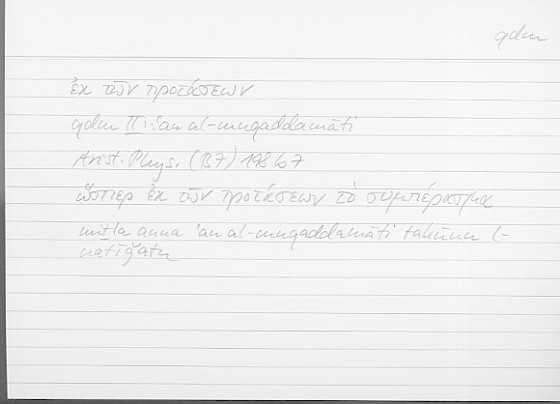 qdm
ἐκ τῶν προτάσεων
qdm II: ʿan al-muqaddamāti
Arist. Phys. (B7) 198 b7
ὥσπερ ἐκ τῶν προτάσεων τὸ συμπέρασμα
miṯla anna ʿan al-muqaddamāti takūnu l-
natīǧatu